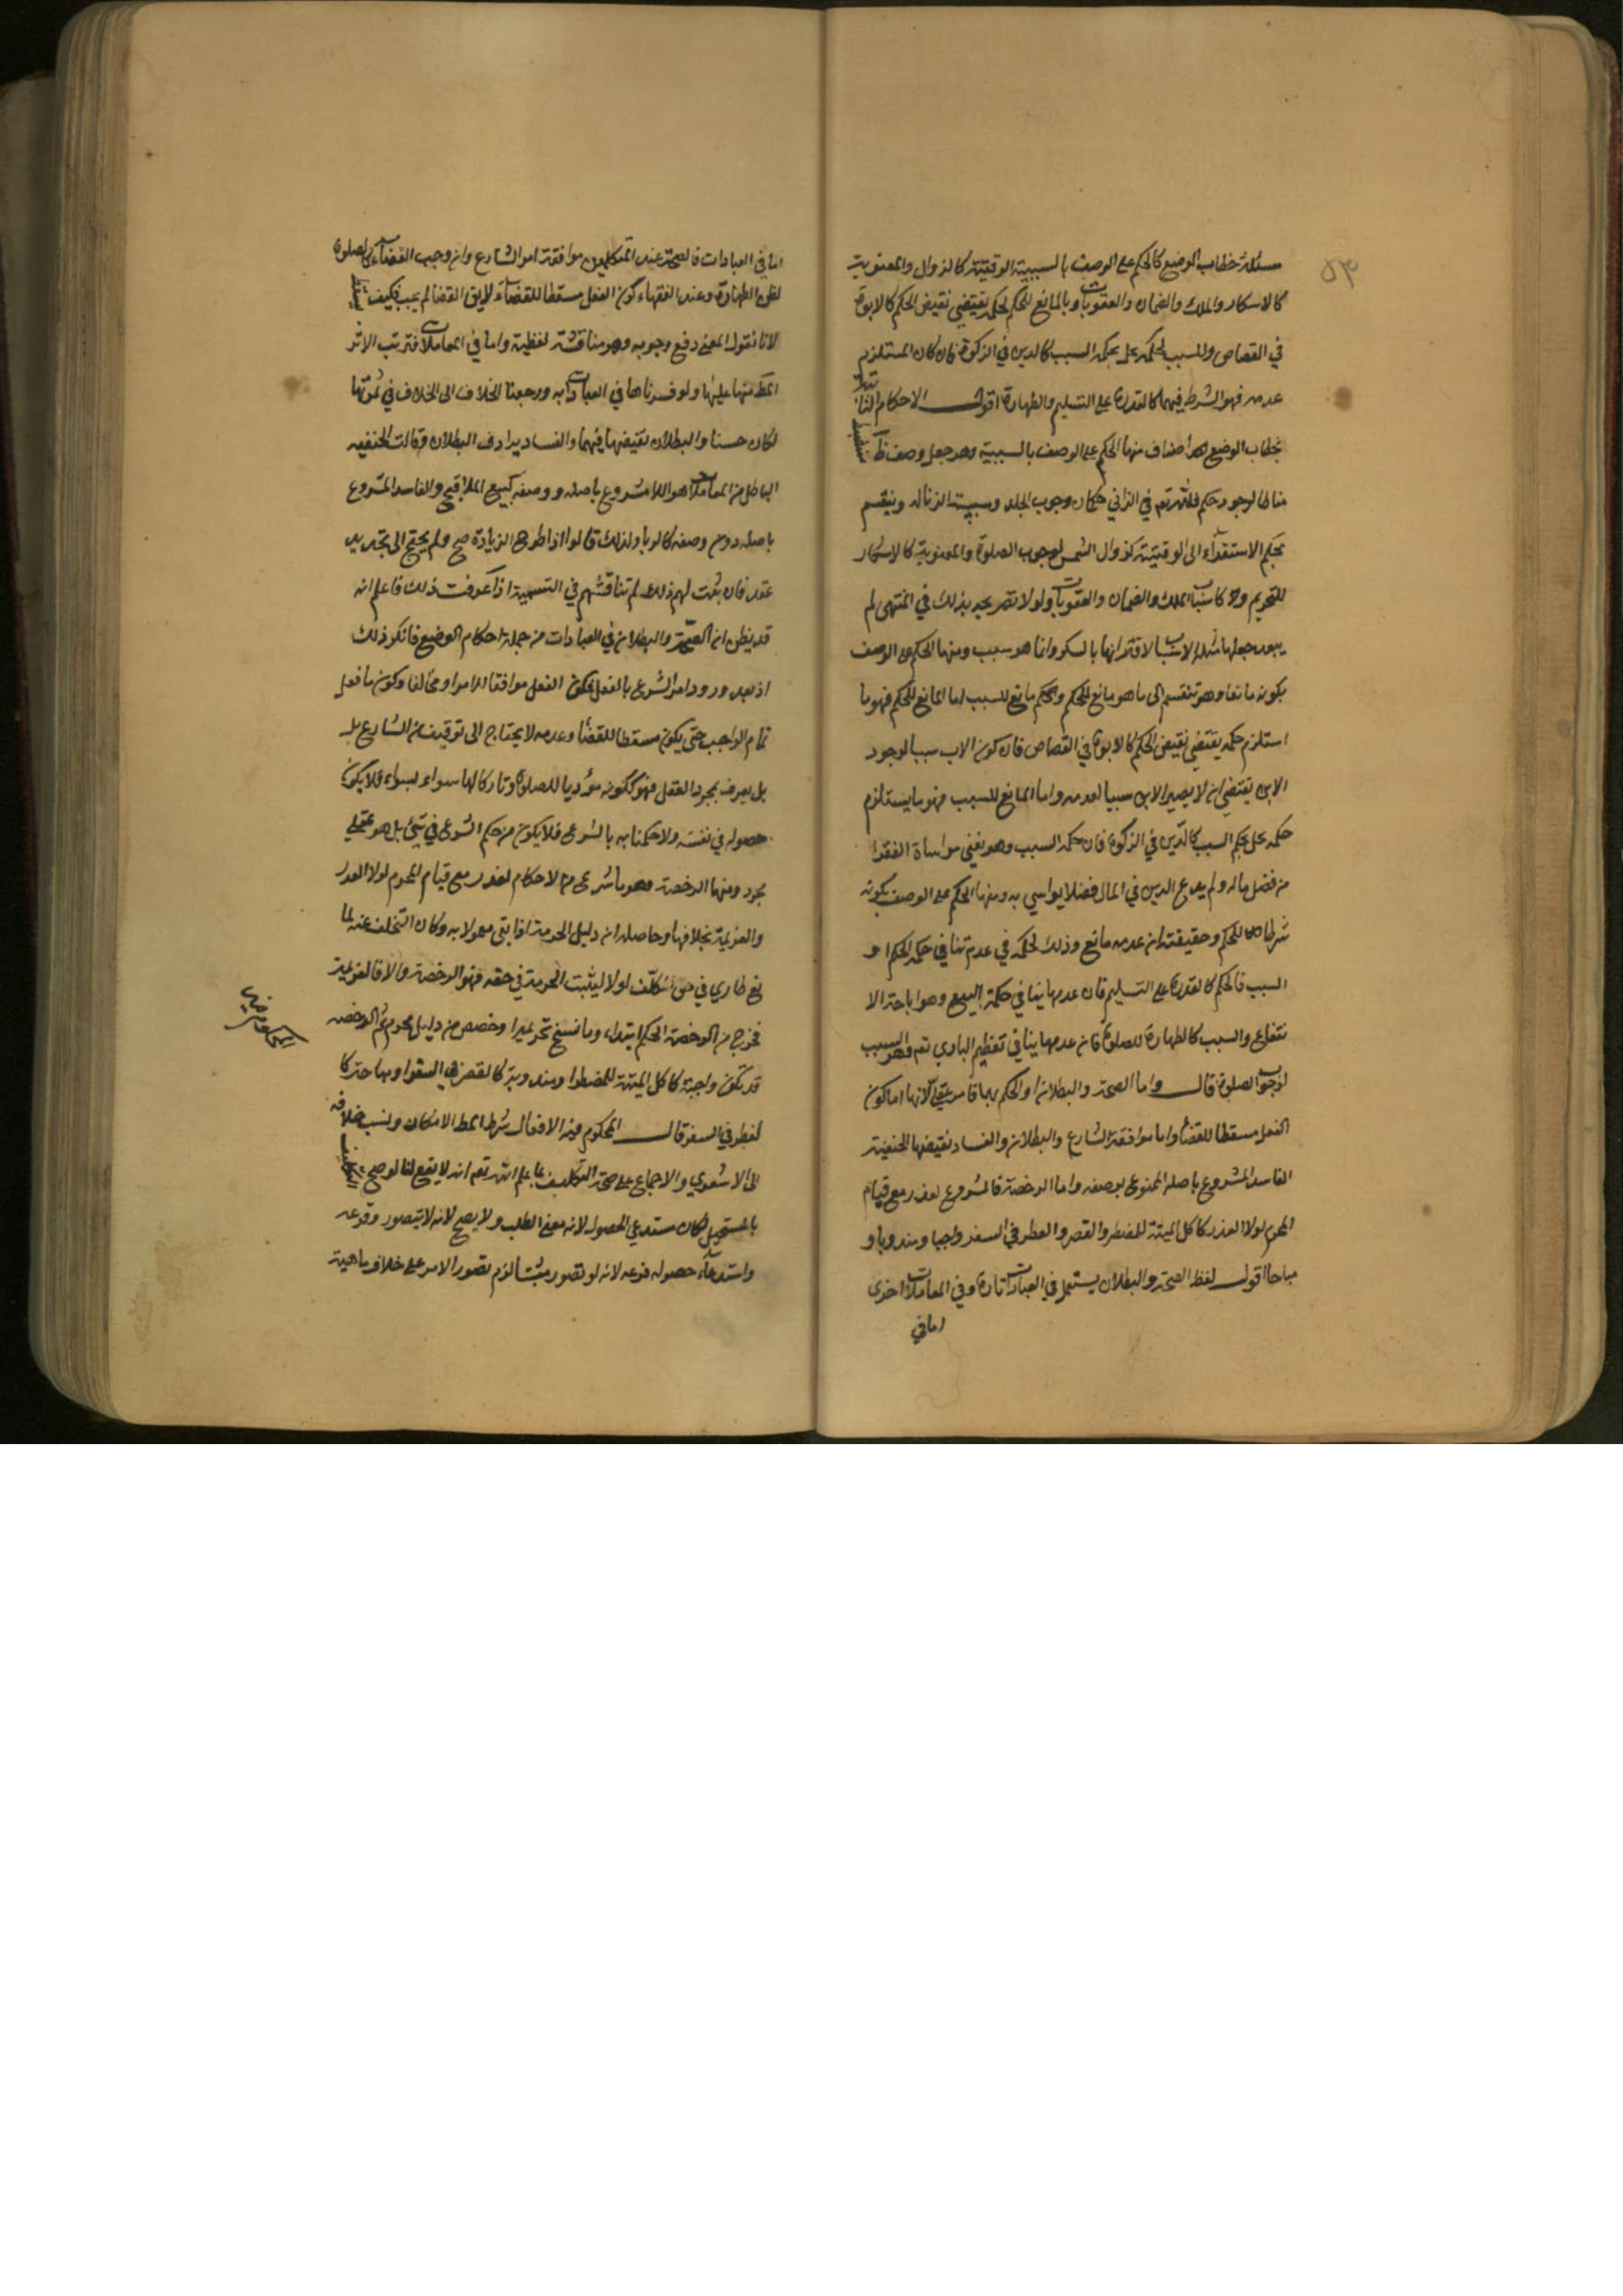 ٥٣
مسئلة خطاب الوضع كالحكم على الوصف بالسببية الوقتية كالزوال والمعنوية
كالاسكار والملك والضمان والعقوبات وبالمانع للحكم لحكمة يقتضي نقيض الحكم كالابوة
في القصاص وللسبب لحكمة يخل بحكمة السبب كالدين في الزكوة فان كان المستلزم
عدمه فهو الشرط فيهما كالقدرة على التسليم والطهارة اقول الاحكام الثابتة
بخطاب الوضع اصناف منها الحكم على الوصف بالسببية وهو جعل وصف ظ
مناطا لوجود حكم فلله تعم في الزاني حكمان وجوب الجلد وسببية الزنا له وينقسم
بحكم الاستقراء الى الوقتية كزوال الشمس لوجوب الصلوة والمعنوية كالاسكار
للتحريم وكاسباب الملك والضمان والعقوبات ولولا تصريحه بذلك في المنتهى لم
يبعد جعلها امثلة الاسباب لاقترانها بالسكر وانما هو سبب ومنها الحكم على الوصف
بكونه مانعا وهو تنقسم الى ما هو مانع للحكم والحكم مانع للسبب اما المانع للحكم فهو ما
استلزم حكمة يقتضي نقيض الحكم كالابوة في القصاص فان كون الاب سببا لوجود
الابن يقتضي ان لا يصير الابن سببا لعدمه واما المانع للسبب فهو ما يستلزم
حكمة يخل بحكم السبب كالدّين في الزكوة فان حكمة السبب وهو يغني مواساة الفقرا
من فضل ماله ولم يدع الدين في المال فضلا يواسي به ومنها الحكم على الوصف بكونه
شرطا للحكم وحقيقته ان عدمه مانع وذلك لحكمة في عدم تنافي حكمة الحكم او
السبب فالحكم كالقدرة على التسليم فان عدمها ينافي حكمة البيع وهو اباحة الا
نتفاع والسبب كالطهارة للصلوة فان عدمها ينافي تعظيم الباري تعم وهو السبب
لوجوب الصلوة قال واما الصحة والبطلان او الحكم بهما فامر عقلي لانها اما كون
الفعل مسقطا للقضاء واما موافقة الشارع والبطلان والفساد نقيضها الحنفية
الفاسد المشروع باصله الممنوع بوصفه واما الرخصة فالمشروع لعذر مع قيام
المحرم لولا العذر كاكل الميتة للمضطر والقصر والفطر في السفر واجبا ومندوبا و
مباحا اقول لفظ الصحة والبطلان يستعمل في العبادات تارة وفي المعاملات اخرى
اما في
اما في العبادات فالصحة عند المتكلمين موافقة امر الشارع وان وجب القضاء كالصلوة
لظن الطهارة وعند الفقهاء كون الفعل مسقطا للقضاء لا يق القضا لم يجب فكيف يسقط
لانا نقول المعنى دفع وجوبه وهو مناقشة لفظية واما في المعاملات فترتب الاثر
المط منها عليها ولو فسرناها في العبادات به ورجعنا الخلاف الى الخلاف في ثمرتها
لكان حسنا والبطلان نقيضها فيهما والفساد يرادف البطلان وقالت الحنفيه
الباطل من المعاملات هو اللا مشروع باصله ووصفه كبيع الملاقيح والفاسد المشروع
باصله دون وصفه كالربا ولذلك قالوا اذا طرح الزيادة صح ولم يحتج الى تجديد
عقد فان يثبت لهم ذلك لم تناقشهم في التسمية اذا عرفت ذلك فاعلم انه
قد يظن ان الصحّة والبطلان في العبادات من جملة احكام الوضع فانكر ذلك
اذ بعد ورود امر الشرع بالفعل يكون الفعل موافقا للامر او مخالفا وكون ما فعل
تمام الواجب حتى يكون مسقطا للقضاء وعدمه لا يحتاج الى توقيف من الشارع بل
بل يعرف بمجرد العقل فهو ككونه مؤديا للصلوة وتاركا لها سواء بسواء فلا يكون
حصوله في نفسه ولا حكمنا به بالشرع فلا يكون من حكم الشرع في شئ بل هو عقلي
مجرد ومنها الرخصة وهو ما شرع من الاحكام لعذر مع قيام المحرم لولا العذر
والعزيمة بخلافها وحاصله ان دليل الحرمة اذا بقى معمولا به وكان التخلف عنه لما
نع طاري في حق المكلّف لولا ليثبت الحرمة في حقه فهو الرخصة والا فالعزيمة
فخرج من الرخصة الحكم ابتداء وما نسخ تحريما او خصص من دليل محرم ثم الرخصه
قد تكون واجبة كاكل الميتة للمضطر او مندوبة كالقصر في السفر او مباحة كا
لفطر في السفر قال المحكوم فيه الافعال شرط المط الامكان ونسب خلافه
الى الاشعري والاجماع على صحة التكليف بما علم الله تعم انه لا يقع لنا لو صح التكليف
بالمستحيل لكان مستدعي الحصول لانه معنى الطلب ولا يصح لانه لا يتصور وقوعه
واستدعاء حصوله فرعه لانه لو تصور مثبتا لزم تصور الامر على خلاف ماهية